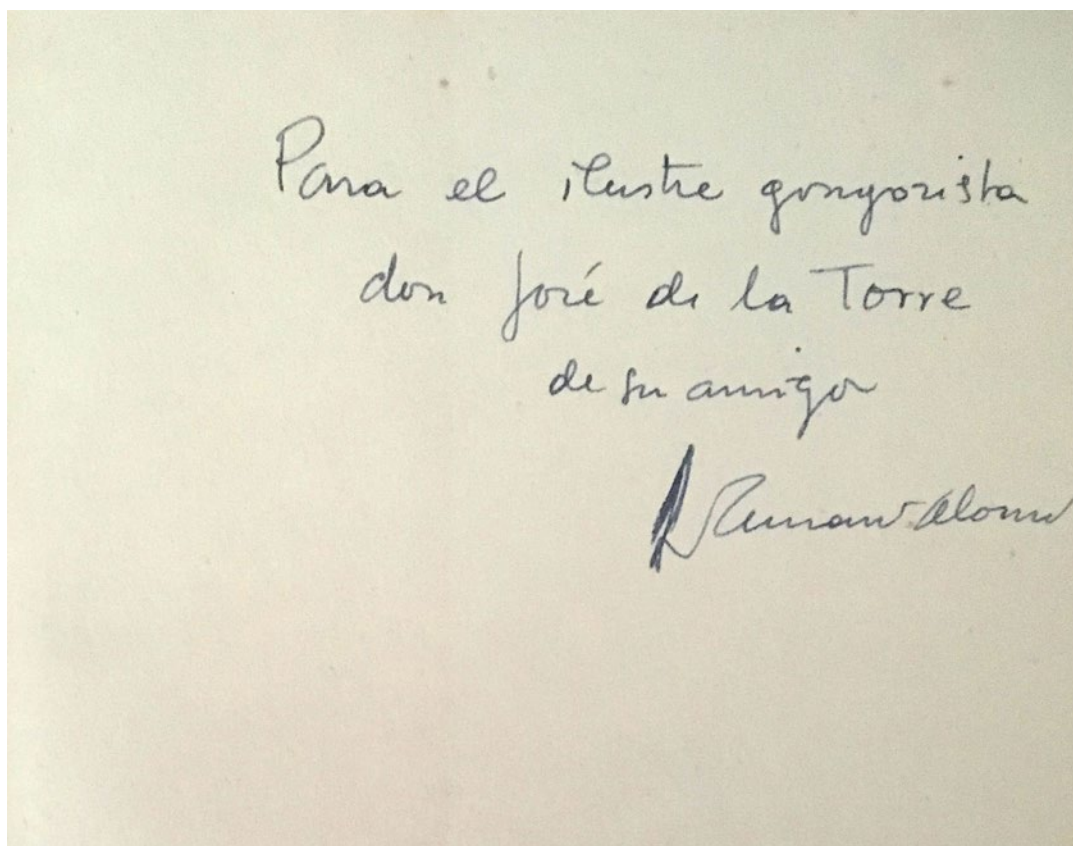 Para el ilustre gongorista
don José de la Torre
de su amigo
Dámaso Alonso